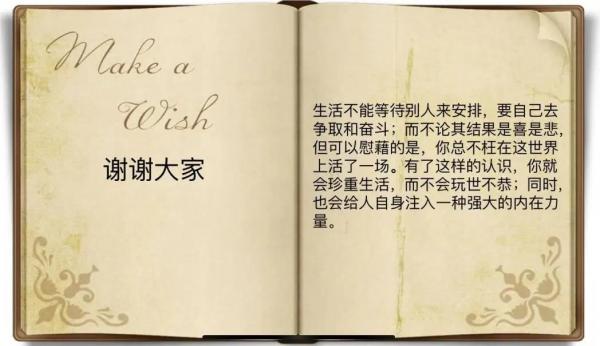 Make a
Wish
谢谢大家
生活不能等待别人来安排，要自己去
争取和奋斗；而不论其结果是喜是悲，
但可以慰藉的是，你总不枉在这世界
上活了一场。有了这样的认识，你就
会珍重生活，而不会玩世不恭；同时，
也会给人自身注入一种强大的内在力
量。